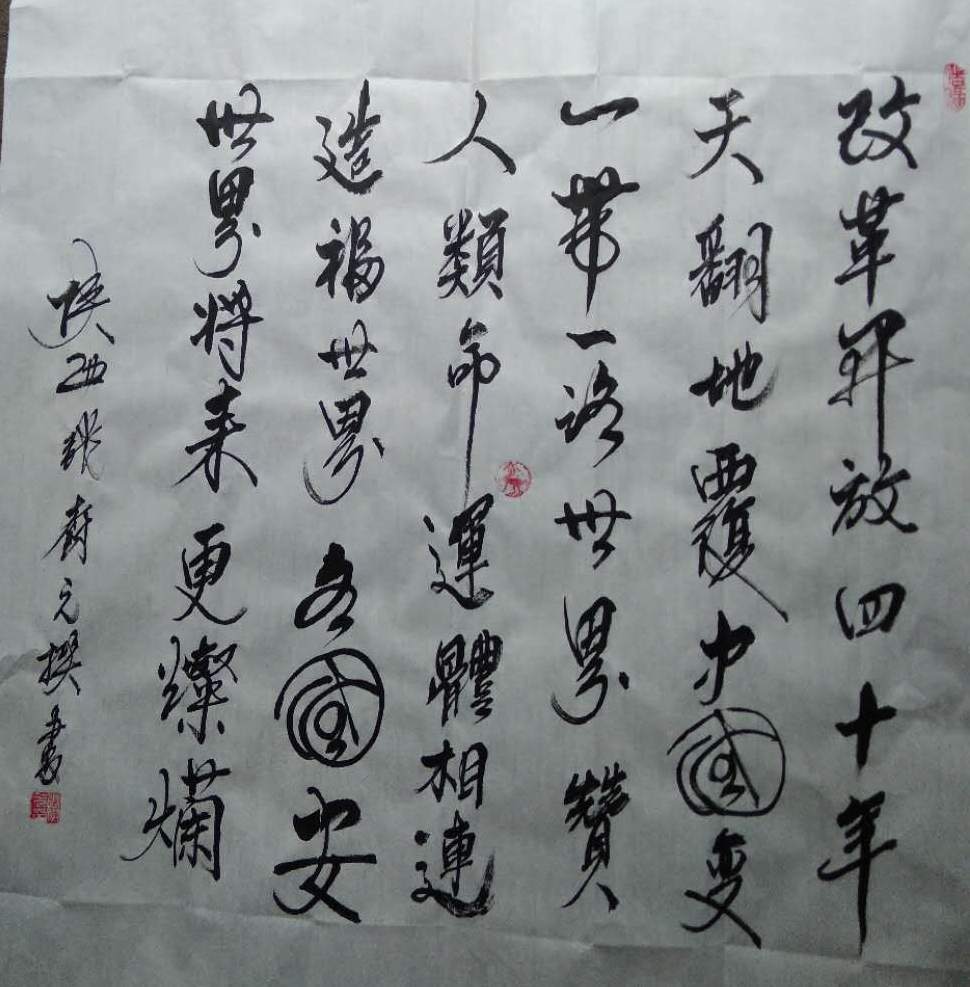 改革开放四十年
天翻地覆中國变
一带一路世界贊
人類命運體相連
造福世界各國安
世界将来更燦爛
陕西 齊元撰书